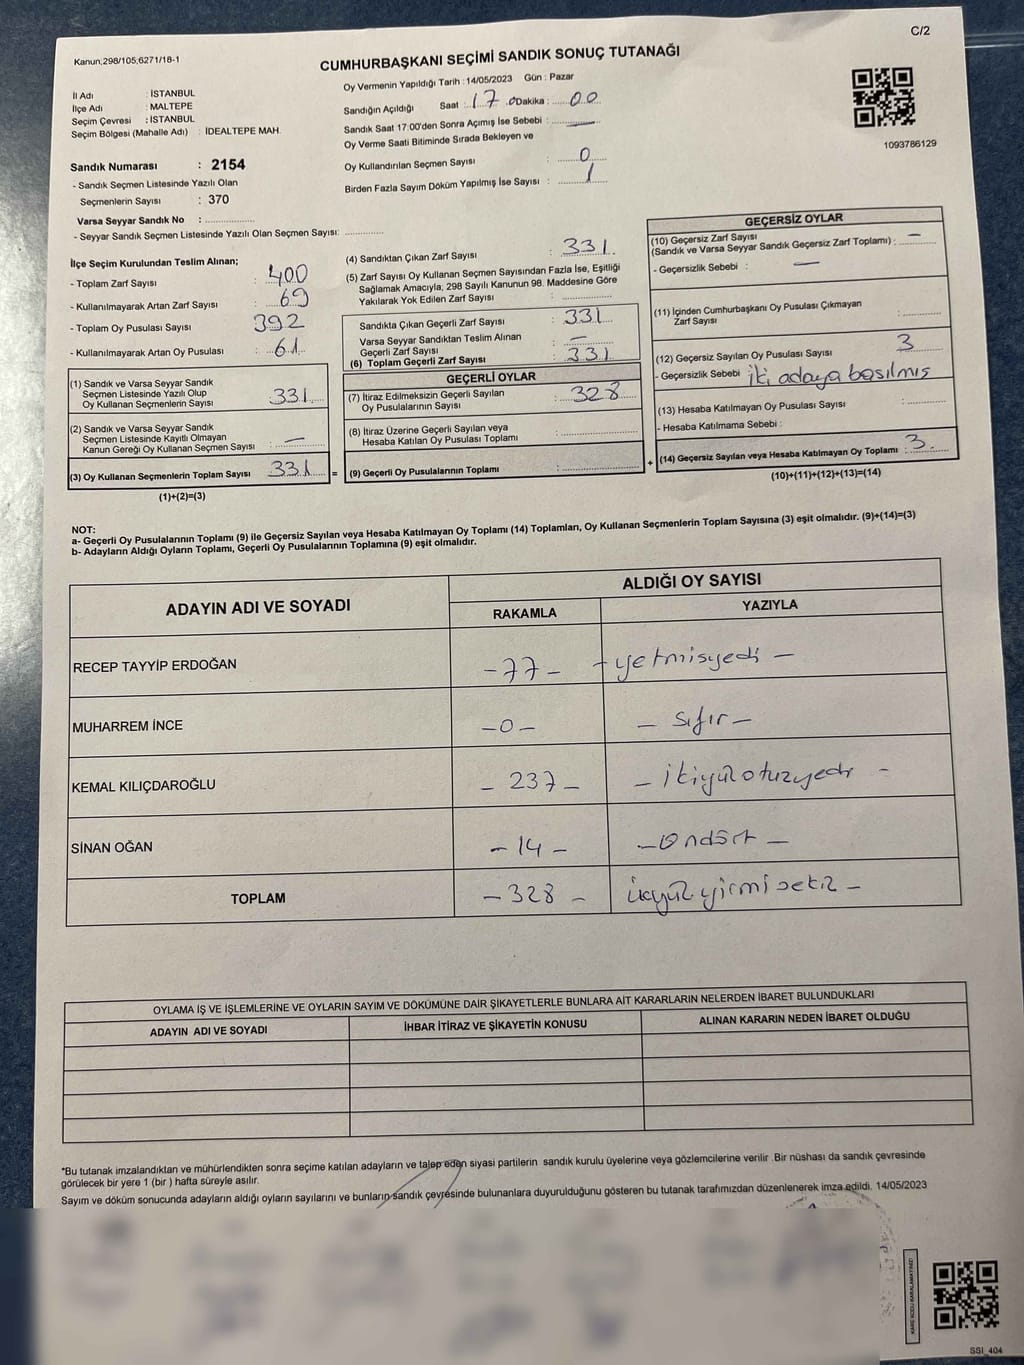 C/2
Kanun;298/105;6271/18-1
CUMHURBAŞKANI SEÇİMİ SANDIK SONUÇ TUTANAĞI
Oy Vermenin Yapıldığı Tarih : 14/05/2023 Gün : Pazar
İl Adı : İSTANBUL
İlçe Adı : MALTEPE
Seçim Çevresi : İSTANBUL
Seçim Bölgesi (Mahalle Adı) : İDEALTEPE MAH.
Sandığın Açıldığı Saat : 17 Dakika : 00
Sandık Saat 17:00'den Sonra Açımış İse Sebebi : —
Oy Verme Saati Bitiminde Sırada Bekleyen ve
Oy Kullandırılan Seçmen Sayısı : 0
Birden Fazla Sayım Döküm Yapılmış İse Sayısı : 1
1093786129
Sandık Numarası : 2154
- Sandık Seçmen Listesinde Yazılı Olan
Seçmenlerin Sayısı : 370
Varsa Seyyar Sandık No :
- Seyyar Sandık Seçmen Listesinde Yazılı Olan Seçmen Sayısı:
İlçe Seçim Kurulundan Teslim Alınan;
- Toplam Zarf Sayısı : 400
- Kullanılmayarak Artan Zarf Sayısı : 69
- Toplam Oy Pusulası Sayısı : 392
- Kullanılmayarak Artan Oy Pusulası : 61
(1) Sandık ve Varsa Seyyar Sandık
Seçmen Listesinde Yazılı Olup
Oy Kullanan Seçmenlerin Sayısı : 331
(2) Sandık ve Varsa Seyyar Sandık
Seçmen Listesinde Kayıtlı Olmayan
Kanun Gereği Oy Kullanan Seçmen Sayısı : —
(3) Oy Kullanan Seçmenlerin Toplam Sayısı 331 =
(1)+(2)=(3)
(4) Sandıktan Çıkan Zarf Sayısı : 331
(5) Zarf Sayısı Oy Kullanan Seçmen Sayısından Fazla İse, Eşitliği
Sağlamak Amacıyla; 298 Sayılı Kanunun 98. Maddesine Göre
Yakılarak Yok Edilen Zarf Sayısı :
Sandıkta Çıkan Geçerli Zarf Sayısı : 331
Varsa Seyyar Sandıktan Teslim Alınan
Geçerli Zarf Sayısı : —
(6) Toplam Geçerli Zarf Sayısı : 331
GEÇERLİ OYLAR
(7) İtiraz Edilmeksizin Geçerli Sayılan
Oy Pusulalarının Sayısı : 328
(8) İtiraz Üzerine Geçerli Sayılan veya
Hesaba Katılan Oy Pusulası Toplamı :
(9) Geçerli Oy Pusulalarının Toplamı : +
GEÇERSİZ OYLAR
(10) Geçersiz Zarf Sayısı
(Sandık ve Varsa Seyyar Sandık Geçersiz Zarf Toplamı) : —
- Geçersizlik Sebebi : —
(11) İçinden Cumhurbaşkanı Oy Pusulası Çıkmayan
Zarf Sayısı :
(12) Geçersiz Sayılan Oy Pusulası Sayısı : 3
- Geçersizlik Sebebi : iki adaya basılmış
(13) Hesaba Katılmayan Oy Pusulası Sayısı :
- Hesaba Katılmama Sebebi :
(14) Geçersiz Sayılan veya Hesaba Katılmayan Oy Toplamı : 3
(10)+(11)+(12)+(13)=(14)
NOT:
a- Geçerli Oy Pusulalarının Toplamı (9) ile Geçersiz Sayılan veya Hesaba Katılmayan Oy Toplamı (14) Toplamları, Oy Kullanan Seçmenlerin Toplam Sayısına (3) eşit olmalıdır. (9)+(14)=(3)
b- Adayların Aldığı Oyların Toplamı, Geçerli Oy Pusulalarının Toplamına (9) eşit olmalıdır.
ADAYIN ADI VE SOYADI
ALDIĞI OY SAYISI
RAKAMLA YAZIYLA
RECEP TAYYİP ERDOĞAN -77- - yetmişyedi -
MUHARREM İNCE -0- - sıfır -
KEMAL KILIÇDAROĞLU - 237 - - ikiyüzotuzyedi -
SİNAN OĞAN - 14 - - ondört -
TOPLAM - 328 - üçyüzyirmisekiz -
OYLAMA İŞ VE İŞLEMLERİNE VE OYLARIN SAYIM VE DÖKÜMÜNE DAİR ŞİKAYETLERLE BUNLARA AİT KARARLARIN NELERDEN İBARET BULUNDUKLARI
ADAYIN ADI VE SOYADI İHBAR İTİRAZ VE ŞİKAYETİN KONUSU ALINAN KARARIN NEDEN İBARET OLDUĞU
*Bu tutanak imzalandıktan ve mühürlendikten sonra seçime katılan adayların ve talep eden siyasi partilerin sandık kurulu üyelerine veya gözlemcilerine verilir .Bir nüshası da sandık çevresinde
görülecek bir yere 1 (bir ) hafta süreyle asılır.
Sayım ve döküm sonucunda adayların aldığı oyların sayılarını ve bunların sandık çevresinde bulunanlara duyurulduğunu gösteren bu tutanak tarafımızdan düzenlenerek imza edildi. 14/05/2023
KARE KODU KARALAMAYINIZ!
SSI_404